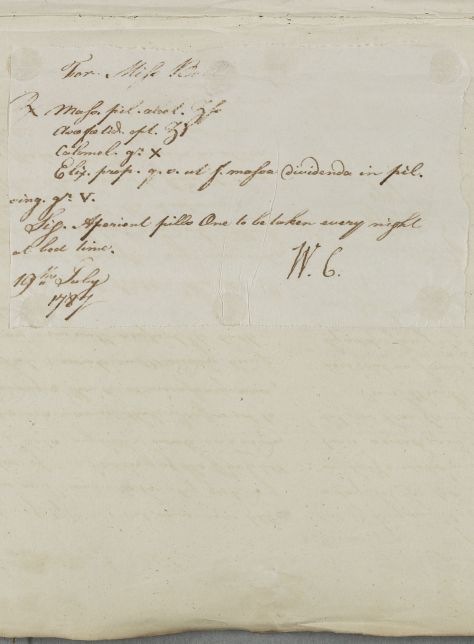 For Miss
℞ Massa. pil. aloet. ʒſs
Asafœtid. opt. ʒſs
Calomel. gr. X
Elix. prop. q. s. ut f. massa dividenda in pil.
sing. gr. V.
Sig. Aperient pills One to be taken every night
at bed time.
W. C.
19th July
1787